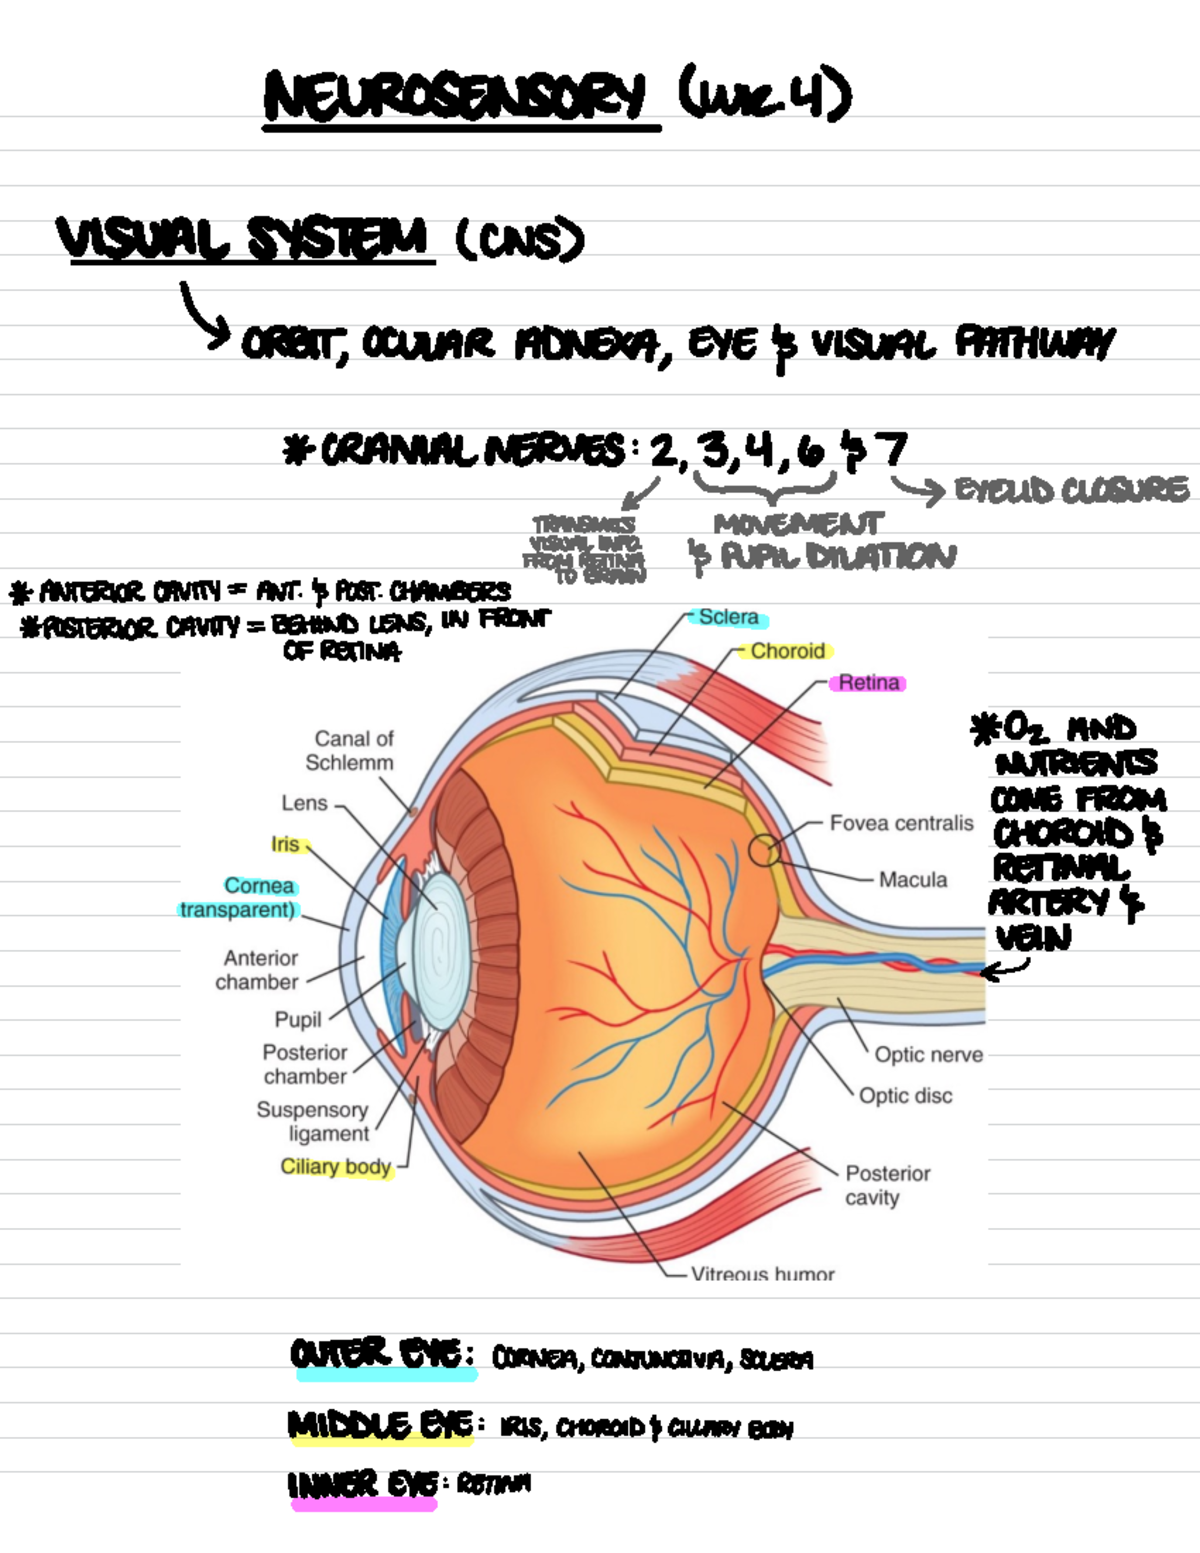 NEUROSENSORY (wk. 4)
VISUAL SYSTEM (CNS)
ORBIT, OCULAR ADNEXA, EYE & VISUAL PATHWAY
* CRANIAL NERVES: 2, 3, 4, 6 & 7
EYELID CLOSURE
TRANSMITS
VISUAL INFO.
FROM RETINA
TO BRAIN
MOVEMENT
& PUPIL DILATION
* ANTERIOR CAVITY = ANT. & POST. CHAMBERS
* POSTERIOR CAVITY = BEHIND LENS, IN FRONT
OF RETINA
Sclera
Choroid
Retina
Canal of
Schlemm
Lens
Iris
Cornea
transparent)
Anterior
chamber
Pupil
Posterior
chamber
Suspensory
ligament
Ciliary body
Fovea centralis
Macula
* O₂ AND
NUTRIENTS
COME FROM
CHOROID &
RETINAL
ARTERY &
VEIN
Optic nerve
Optic disc
Posterior
cavity
Vitreous humor
OUTER EYE: CORNEA, CONJUNCTIVA, SCLERA
MIDDLE EYE: IRIS, CHOROID & CILIARY BODY
INNER EYE: RETINA